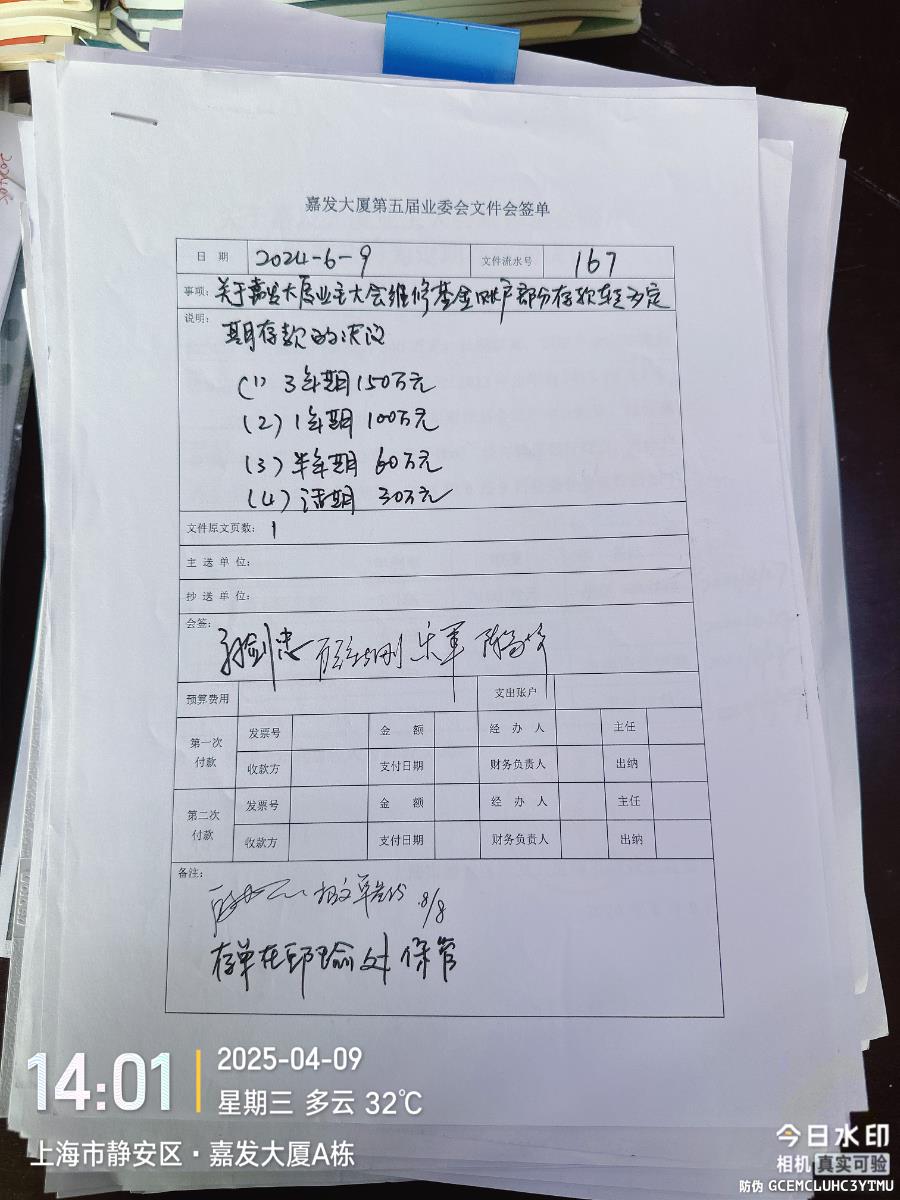 嘉发大厦第五届业委会文件会签单
日 期 2024-6-9 文件流水号 167
事项: 关于嘉发大厦业主大会维修基金账户部分存款转为定
说明: 期存款的决议
(1) 3年期150万元
(2) 1年期 100万元
(3) 半年期 60万元
(4) 活期 30万元
文件原文页数: 1
主 送 单 位:
抄 送 单 位:
会签:
预算费用 支出账户
第一次付款 发票号 金 额 经 办 人 主任
收款方 支付日期 财务负责人 出纳
第二次付款 发票号 金 额 经 办 人 主任
收款方 支付日期 财务负责人 出纳
备注:
8/8
存单在 处保管
14:01
2025-04-09
星期三 多云 32℃
上海市静安区·嘉发大厦A栋
今日水印
相机 真实可验
防伪 GCEMCLUHC3YTMU